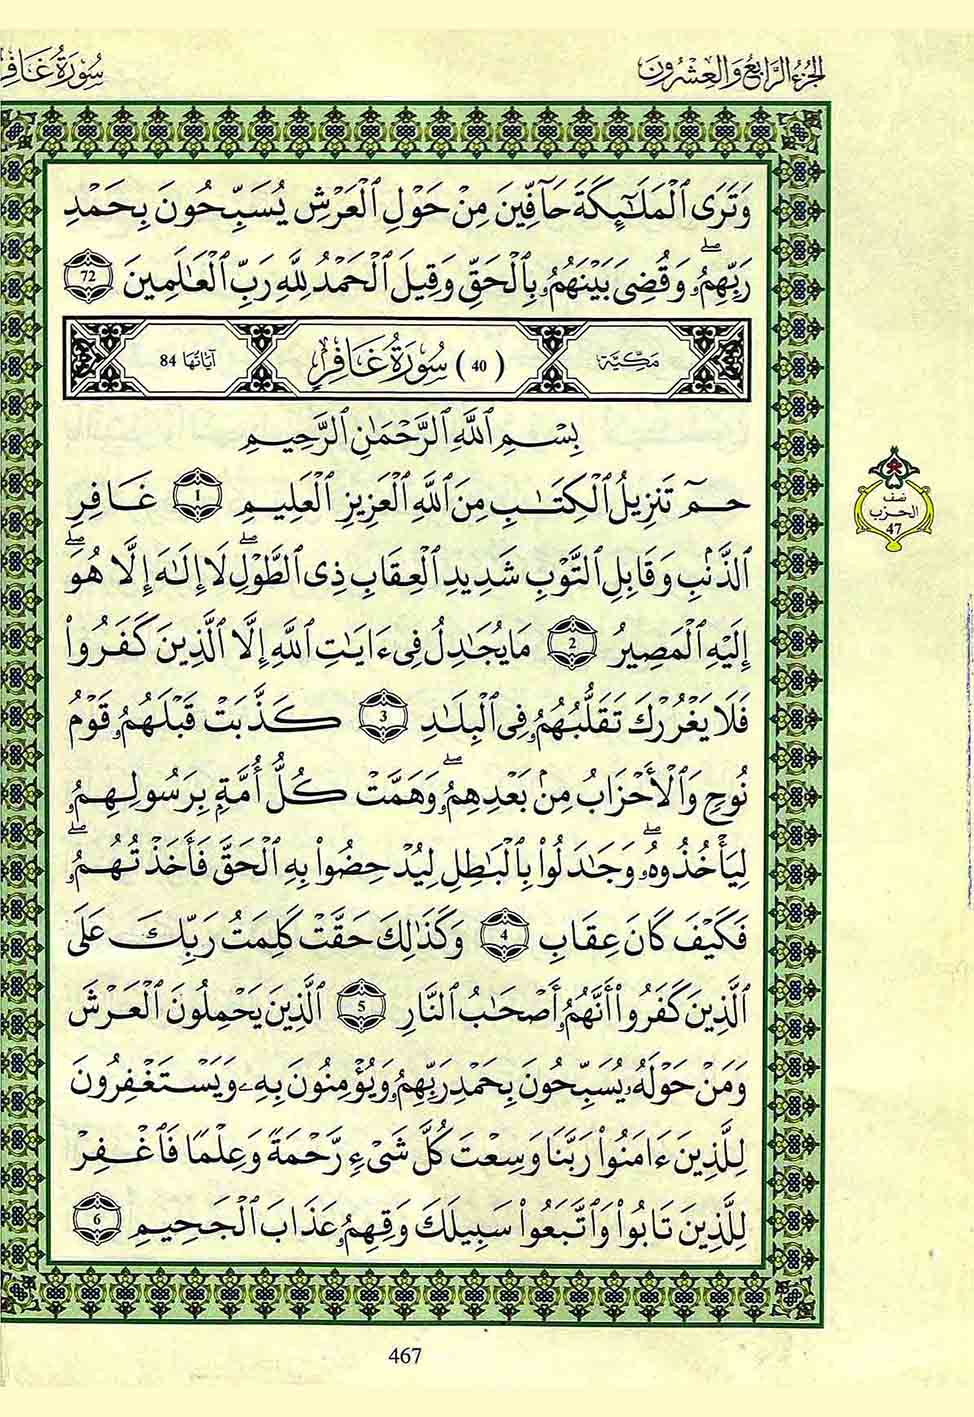 الجزء الرابع والعشرون
سورة غافر
وَتَرَى اَ۬لْمَلَٰٓئِكَةَ حَآفِّينَ مِنْ حَوْلِ اِ۬لْعَرْشِ يُسَبِّحُونَ بِحَمْدِ
رَبِّهِمُۥۖ وَقُضِيَ بَيْنَهُمُۥ بِالْحَقِّ وَقِيلَ اَ۬لْحَمْدُ لِلهِ رَبِّ اِ۬لْعَٰلَمِينَ 72
مكية
(40) سورة غافر
آياتها 84
بِسْمِ اِ۬للَّهِ اِ۬لرَّحْمَٰنِ اِ۬لرَّحِيمِ
حمٓ تَنزِيلُ اُ۬لْكِتَٰبِ مِنَ اَ۬للَّهِ اِ۬لْعَزِيزِ اِ۬لْعَلِيمِ 1 غَافِرِ
اِ۬لذَّنۢبِ وَقَابِلِ اِ۬لتَّوْبِ شَدِيدِ اِ۬لْعِقَابِ ذِي اِ۬لطَّوْلِۖ لَا إِلَٰهَ إِلَّا هُوَۖ
إِلَيْهِ اِ۬لْمَصِيرُ 2 مَا يُجَٰدِلُ فِي ءَايَٰتِ اِ۬للَّهِ إِلَّا اَ۬لَّذِينَ كَفَرُواْ
فَلَا يَغْرُرْكَ تَقَلُّبُهُمُۥ فِي اِ۬لْبِلَٰدِ 3 كَذَّبَتْ قَبْلَهُمُۥ قَوْمُ
نُوحٍ وَالْأَحْزَابُ مِنۢ بَعْدِهِمُۥۖ وَهَمَّتْ كُلُّ أُمَّةٍ بِرَسُولِهِمُۥ
لِيَأْخُذُوهُۥۖ وَجَٰدَلُواْ بِالْبَٰطِلِ لِيُدْحِضُواْ بِهِ اِ۬لْحَقَّ فَأَخَذتُّهُمُۥۖ
فَكَيْفَ كَانَ عِقَابِ 4 وَكَذَٰلِكَ حَقَّتْ كَلِمَتُ رَبِّكَ عَلَى
اَ۬لَّذِينَ كَفَرُواْ أَنَّهُمُۥ أَصْحَٰبُ اُ۬لنَّارِ 5 اِ۬لَّذِينَ يَحْمِلُونَ اَ۬لْعَرْشَ
وَمَنْ حَوْلَهُۥ يُسَبِّحُونَ بِحَمْدِ رَبِّهِمُۥ وَيُؤْمِنُونَ بِهِۦ وَيَسْتَغْفِرُونَ
لِلَّذِينَ ءَامَنُواْ رَبَّنَا وَسِعْتَ كُلَّ شَيْءٍ رَّحْمَةً وَعِلْمًا فَاغْفِرْ
لِلَّذِينَ تَابُواْ وَاتَّبَعُواْ سَبِيلَكَ وَقِهِمُۥ عَذَابَ اَ۬لْجَحِيمِ 6
نصف
الحزب
47
467